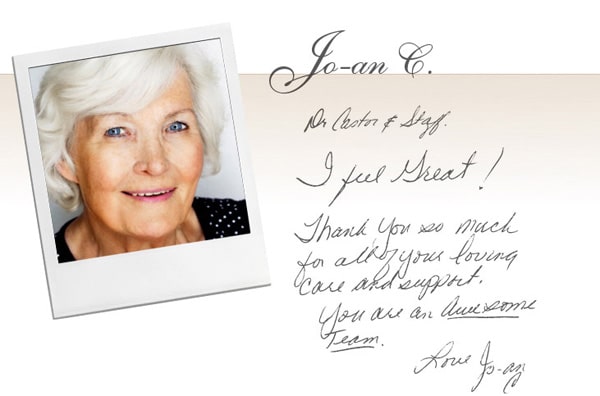 Jo-an C.
Dr Castor & Staff.
I feel Great!
Thank You so much
for all of your loving
care and support.
You are an Awesome
Team.
Love Jo-an